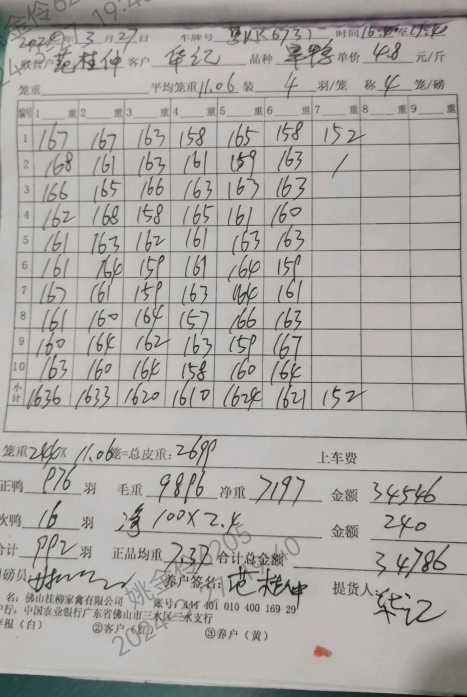 2024年 3月 27日 车牌号 粤 时间
养户 范桂仲 客户 华记 品种 单价 4.8 元/斤
笼重 平均笼重 11.06 装 4 羽/笼 称 4 笼/磅
编号 1 重 2 重 3 重 4 重 5 重 6 重 7 重 8 重 9 重
1 167 167 163 158 165 158 152
2 168 161 163 161 159 163 /
3 166 165 166 163 163 163
4 162 168 158 165 161 160
5 161 163 162 161 163 163
6 161 164 159 161 164 159
7 167 161 159 163 164 161
8 161 160 164 157 166 163
9 160 164 162 163 159 167
10 163 160 164 158 160 164
小计 1636 1633 1620 1610 1624 1621 152
笼重 11.06 笼=总皮重: 2699 上车费
正鸭 976 羽 毛重 9896 净重 7197 金额 34546
次鸭 16 羽 净100×2.4 金额 240
合计 992 羽 正品均重 7.37 合计总金额 34786
司磅员 养户签名: 范桂仲 提货人: 华记
名: 佛山桂柳家禽有限公司 账号: 444 401 010 400 169 29
户行: 中国农业银行广东省佛山市三水区三水支行
存根(白) ②客户(红) ③养户(黄)